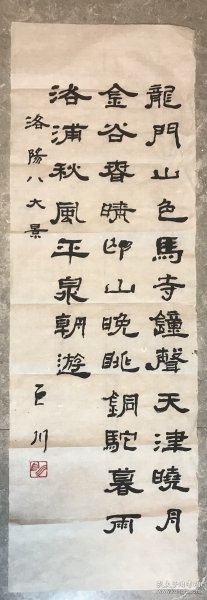 龍門山色馬寺鐘聲天津曉月
金谷春晴邙山晚眺銅駝暮雨
洛浦秋風平泉朝遊
洛陽八大景
巨川